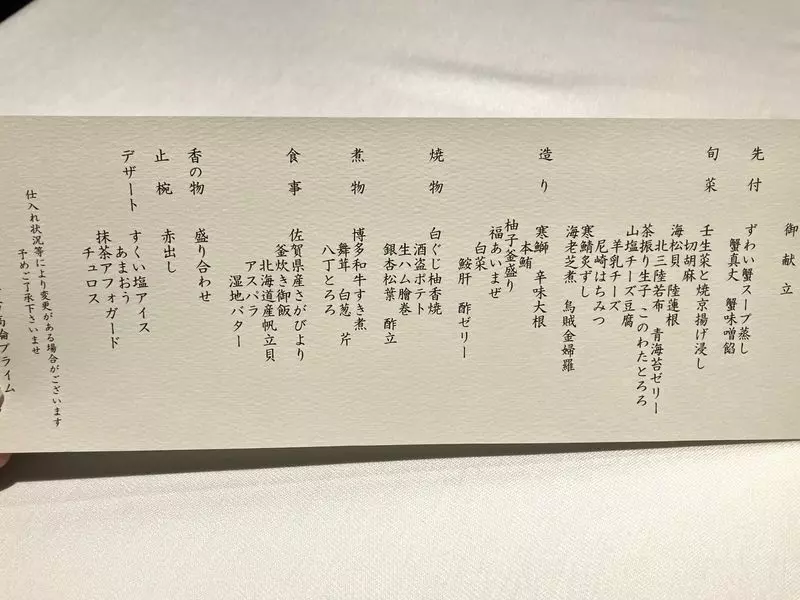 御献立
先付
ずわい蟹スープ蒸し
蟹真丈 蟹味噌餡
旬菜
壬生菜と焼京揚げ浸し
切胡麻
海松貝 陸蓮根
北三陸若布 青海苔ゼリー
茶振り生子 このわたとろろ
山塩チーズ豆腐
羊乳チーズ
尼崎はちみつ
寒鯖炙ずし
海老芝煮 烏賊金婦羅
造り
寒鰤 辛味大根
本鮪
柚子釜盛り
福あいまぜ
白菜
鮟肝 酢ゼリー
焼物
白ぐじ柚香焼
酒盗ポテト
生ハム膾巻
銀杏松葉 酢立
煮物
博多和牛すき煮
舞茸 白葱 芹
八丁とろろ
食事
佐賀県産さがびより
釜炊き御飯
北海道産帆立貝
アスパラ
湿地バター
香の物
盛り合わせ
止椀
赤出し
デザート
すくい塩アイス
あまおう
抹茶アフォガード
チュロス
仕入れ状況等により変更がある場合がございます
予めご了承下さいませ
プライム